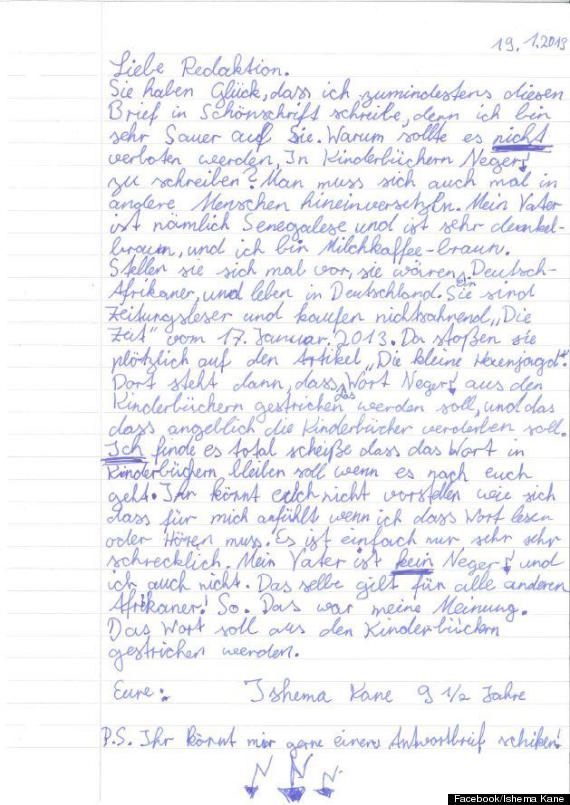 19.1.2013
Liebe Redaktion.
Sie haben Glück, dass ich zumindestens diesen
Brief in Schönschrift schreibe, denn ich bin
sehr Sauer auf Sie. Warum sollte es nicht
verboten werden, In Kinderbüchern Neger
zu schreiben? Man muss sich auch mal in
andere Menschen hineinversetzln. Mein Vater
ist nämlich Senegalese und ist sehr dunkel-
braun, und ich bin Milchkaffee-braun.
Stellen sie sich mal vor, sie wären ein Deutsch-
Afrikaner, und leben in Deutschland. Sie sind
Zeitungsleser und kaufen nichtsahnend „Die
Zeit" vom 17. Januar. 2013. Da stoßen sie
plötzlich auf den Artikel „Die kleine Hexenjagd".
Dort steht dann, dass das Wort Neger aus den
Kinderbüchern gestrichen werden soll, und das
dass angeblich die Kinderbücher verderben soll.
Ich finde es total scheiße dass das Wort in
Kinderbüchern bleiben soll wenn es nach euch
geht. Ihr könnt euch nicht vorstellen wie sich
dass für mich anfühlt wenn ich dass Wort lesen
oder Hören muss. Es ist einfach nur sehr sehr
schrecklich. Mein Vater ist kein Neger und
ich auch nicht. Das selbe gilt für alle anderen
Afrikaner! So. Das war meine Meinung.
Das Wort soll aus den Kinderbückern
gestrichen werden.
Eure: Ishema Kane 9 1/2 Jahre
P.S. Ihr könnt mir gerne einen Antwortbrief schiken!
N N N
Facebook/Ishema Kane